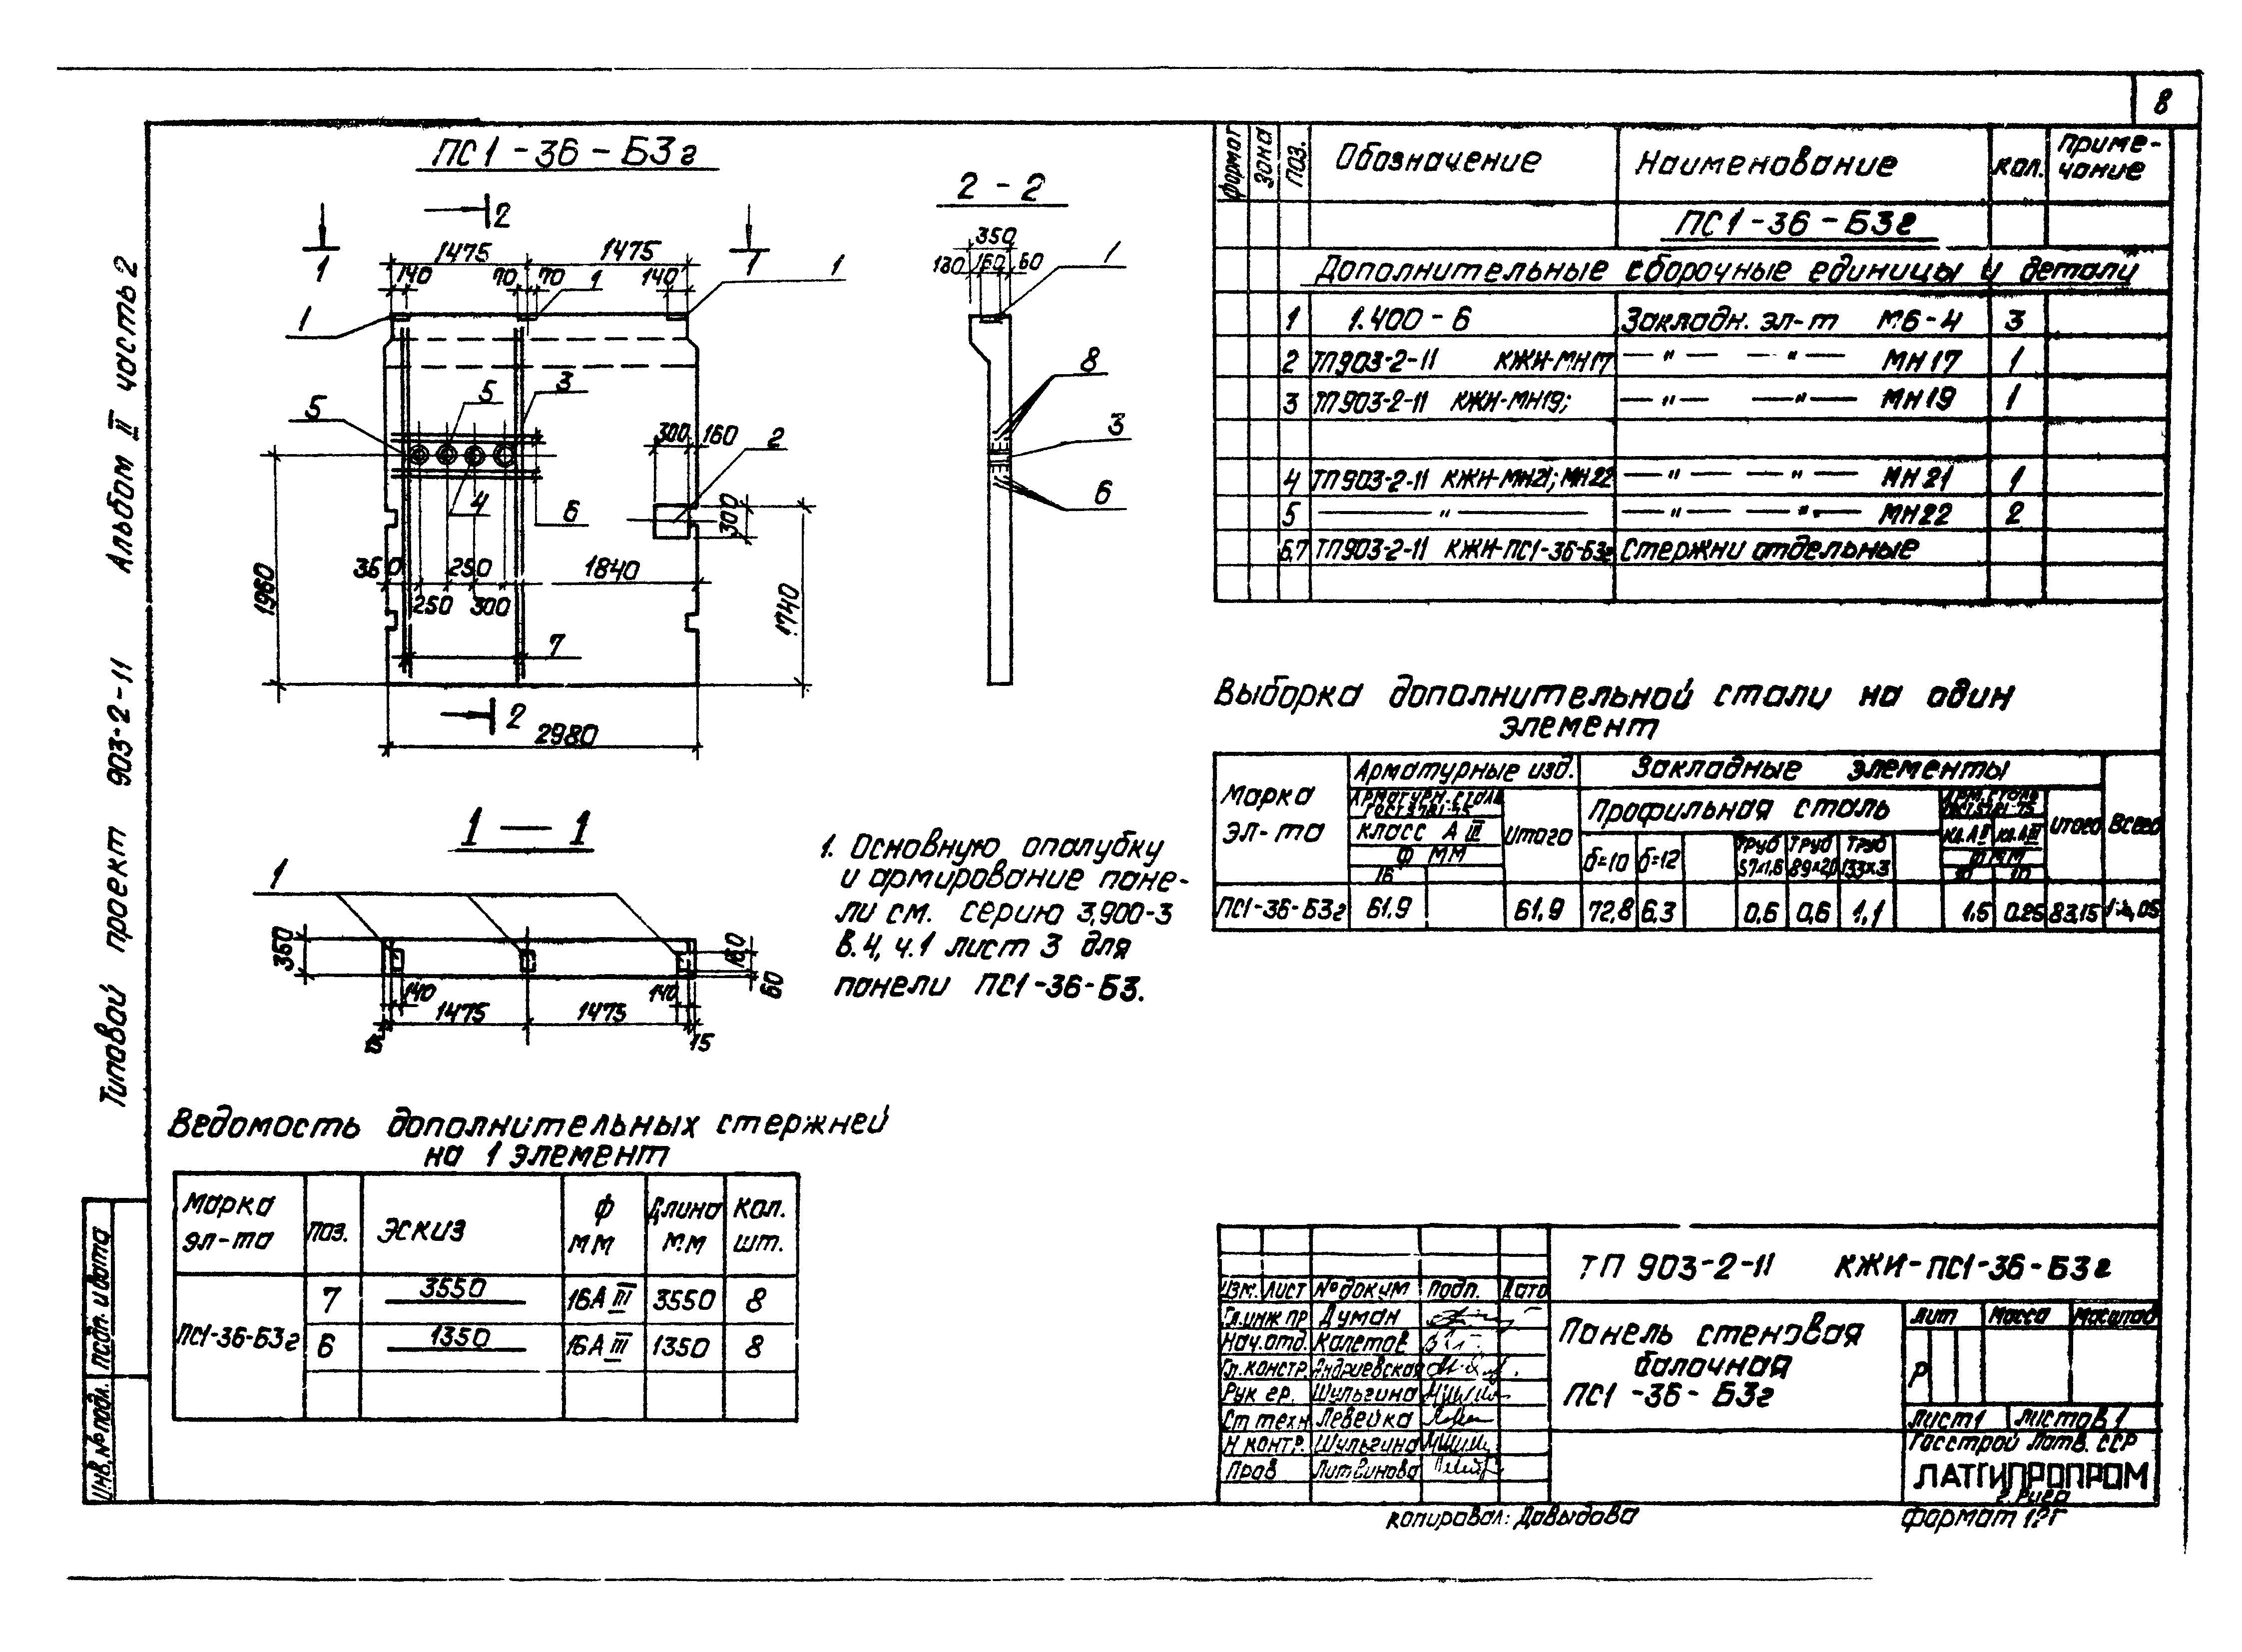 8
Типовой проект 903-2-11 Альбом II часть 2
ПС1-36-Б3г
2
1 1
1475 1475
140 70 70 1 140 1
1
5 5 3
300 160 2
4 6
300
360 250 1840
250 300
1960
1740
7
2
2980
2 - 2
350
130 160 60 1
8
3
6
1 — 1
1
350
160
60
140 140
1475 1475
15
1. Основную опалубку
и армирование пане-
ли см. серию 3.900-3
в.4, ч.1 лист 3 для
панели ПС1-36-Б3.
Формат Зона Поз. Обозначение Наименование Кол. Приме-
чание
ПС1-36-Б3г
Дополнительные сборочные единицы и детали
1 1.400-6 Закладн. эл-т М6-4 3
2 ТП903-2-11 КЖИ-МН17 — " — — " — МН17 1
3 ТП903-2-11 КЖИ-МН19; — " — — " — МН19 1
4 ТП903-2-11 КЖИ-МН21; МН22 — " — — " — МН21 1
5 — " — — " — — " — МН22 2
6,7 ТП903-2-11 КЖИ-ПС1-36-Б3г Стержни отдельные
Выборка дополнительной стали на один
элемент
Марка
эл-та
Арматурные изд. Закладные элементы
Арматурн. сталь
ГОСТ 5781-75
Профильная сталь
Арм. сталь
ГОСТ 5781-75
класс А III Итого кл. А II кл. А III Итого Всего
Ф мм
16
δ=10 δ=12 Труб
57х1,6 Труб
89х2,0 Труб
133х3
Ф мм
10 10
ПС1-36-Б3г 61.9 61.9 72,8 6,3 0,6 0,6 1,1 1,5 0.25 83,15
Ведомость дополнительных стержней
на 1 элемент
Марка
эл-та
поз. Эскиз Ф
мм
Длина
мм
Кол.
шт.
ПС1-36-Б3г
7 3550 16А III 3550 8
6 1350 16А III 1350 8
Инв. № подл. подп. и дата
ТП 903-2-11 КЖИ-ПС1-36-Б3г
Изм. Лист № докум Подп. Дата
Гл.инж пр Думан
Нач.отд. Калетов
Гл.констр. Андриевская
Рук гр. Шульгина
Ст техн Левейка
Н контр. Шульгина
Пров Литвинова
Панель стеновая
балочная
ПС1-36-Б3г
Лит Масса Масштаб
Р
Лист 1 Листов 1
Госстрой Латв. ССР
ЛАТГИПРОПРОМ
г. Рига
Копировал: Давыдова Формат 12Г